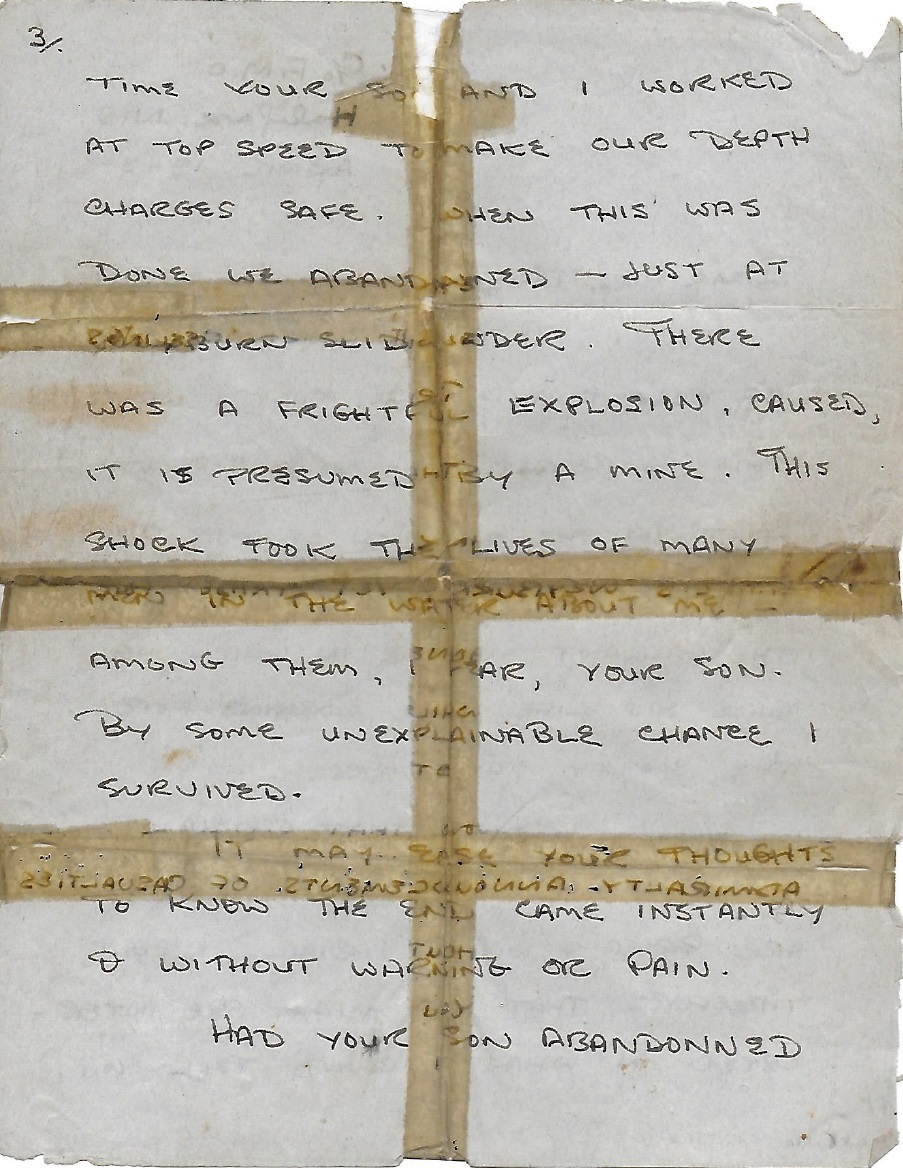 3/.
TIME YOUR SON AND I WORKED
AT TOP SPEED TO MAKE OUR DEPTH
CHARGES SAFE. WHEN THIS WAS
DONE WE ABANDONNED — JUST AT
WEYBURN SLID UNDER. THERE
WAS A FRIGHTFUL EXPLOSION, CAUSED,
IT IS PRESUMED BY A MINE. THIS
SHOCK TOOK THE LIVES OF MANY
MEN IN THE WATER ABOUT ME —
AMONG THEM, I FEAR, YOUR SON.
BY SOME UNEXPLAINABLE CHANCE I
SURVIVED.
IT MAY EASE YOUR THOUGHTS
TO KNOW THE END CAME INSTANTLY
& WITHOUT WARNING OR PAIN.
HAD YOUR SON ABANDONNED